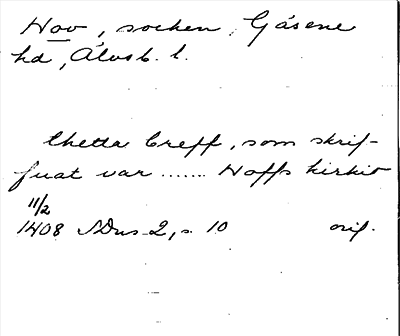 Hov, socken, Gäsene
hd, Älvsb. l.
thetta breff, som skrif-
fuat var ....... Hoffs kirkio
11/2
1408 SDns 2, s. 10 orig.